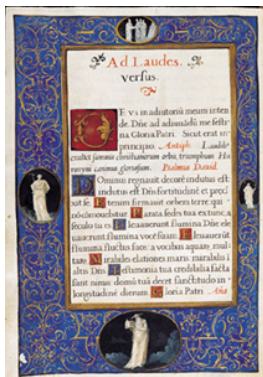 Ad Laudes.
versus.
Deus in adiutoriũ meum inten
de. Dñe ad adiuuãdũ me festi
na Gloria Patri. Sicut erat in
principio. Antiph.
crucis summis christianorum orbis, triumphum
gloriosum. Psalmus Dauid.
Dominus regnauit decorẽ indutus est
indutus est Dñs fortitudinẽ et precĩ
xit se. Etenim firmauit orbem terrę qui
nõ cõmouebitur. Parata sedes tua ex tunc, a
sęculo tu es. Eleuauerunt flumina Dñe ele
uauerunt flumina vocẽ suam. Eleuauerũt
flumina fluctus suos: a vocibus aquarũ mul
tarũ. Mirabiles elationes maris: mirabilis ĩ
altis Dñs. Testimonia tua credibilia facta
sunt nimis: domũ tuã decet sanctitudo in
longitudinẽ dierum. Gloria Patri.